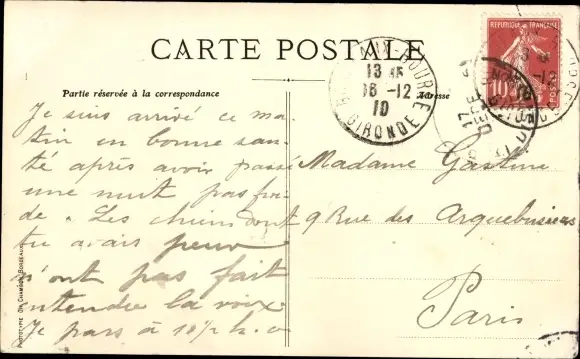 CARTE POSTALE
Partie réservée à la correspondance
Adresse
Je suis arrivé ce ma
tin en bonne san
té après avoir passé
une nuit pas froi
de. Les chiens dont
tu avais peur
n'ont pas fait
entendre la voix
Je pars à 10½ h.
Madame Gasture
9 Rue des Arquebusiers
Paris
RÉPUBLIQUE FRANÇAISE
10
POSTES
BOURSE
13 45
16 -12
10
GIRONDE
PHOTOTYPIE BORDEAUX